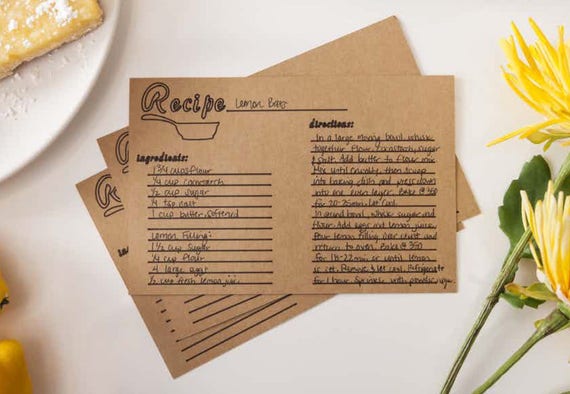 Recipe Lemon Bars
ingredients:
1 3/4 cups flour
1/4 cup cornstarch
1/2 cup sugar
1/4 tsp salt
1 cup butter, softened
Lemon Filling:
1 1/2 cup sugar
1/4 cup flour
4 large eggs
cup fresh lemon juice
directions:
In a large mixing bowl, whisk
together flour, cornstarch, sugar
& salt. Add butter to flour mix
Mix until crumbly, then scoop
into baking dish and press down
into an even layer. Bake @ 350
for 20-25min. Let cool.
In a bowl, whisk sugar and
flour. Add eggs and lemon juice.
Pour lemon filling over crust and
return to oven. Bake @ 350
for 18-22min or until lemon
is set. Remove & let cool. Refrigerate
for 1 hour. Sprinkle with powdered
R
R